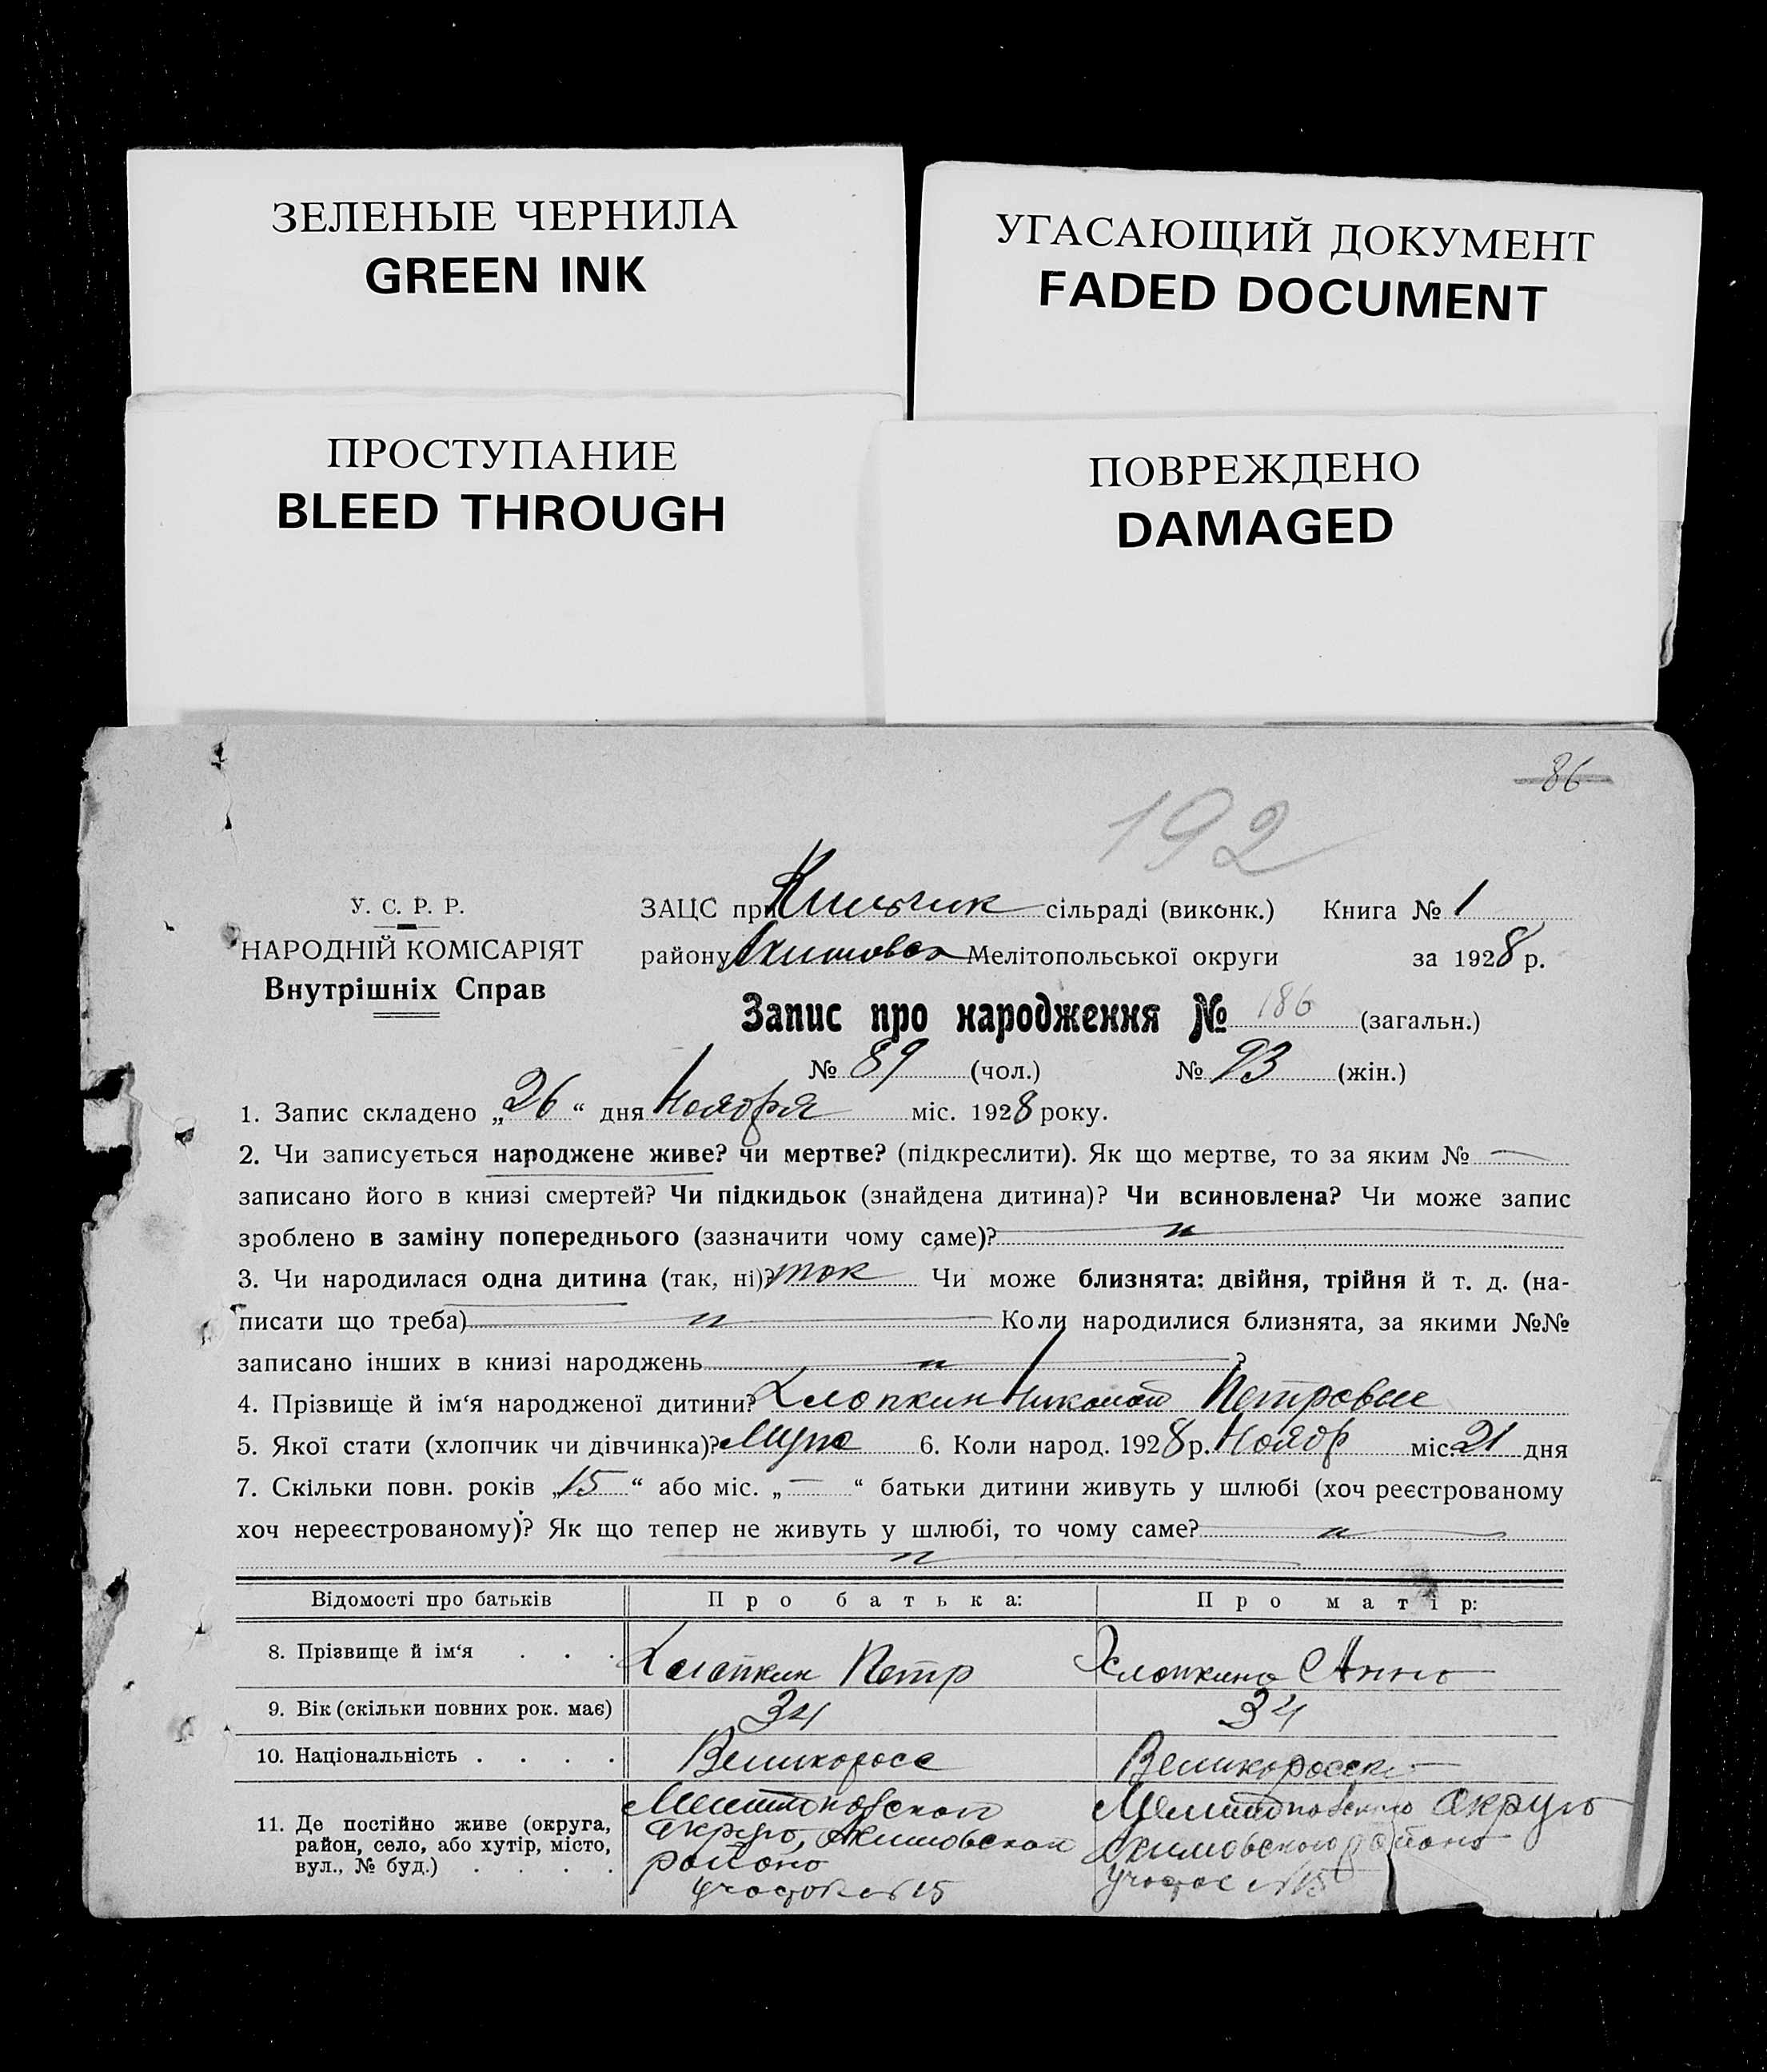 ЗЕЛЕНЫЕ ЧЕРНИЛА
GREEN INK
УГАСАЮЩИЙ ДОКУМЕНТ
FADED DOCUMENT
ПРОСТУПАНИЕ
BLEED THROUGH
ПОВРЕЖДЕНО
DAMAGED
86
192
У. С. Р. Р.
НАРОДНІЙ КОМІСАРІЯТ
Внутрішніх Справ
ЗАЦС при сільраді (виконк.) Книга № 1
району Мелітопольської округи за 1928 р.
Запис про народження № 186 (загальн.)
№ 89 (чол.) № 93 (жін.)
1. Запис складено „26“ дня Ноября міс. 1928 року.
2. Чи записується народжене живе? чи мертве? (підкреслити). Як що мертве, то за яким № —
записано його в книзі смертей? Чи підкидьок (знайдена дитина)? Чи всиновлена? Чи може запис
зроблено в заміну попереднього (зазначити чому саме)?
3. Чи народилася одна дитина (так, ні)? так Чи може близнята: двійня, трійня й т. д. (на-
писати що треба) Коли народилися близнята, за якими №№
записано інших в книзі народжень ?
4. Прізвище й ім‘я народженої дитини? Хлопкин Николай Петрович
5. Якої стати (хлопчик чи дівчинка)? 6. Коли народ. 1928 р. Ноябр міс. 21 дня
7. Скільки повн. років „15“ або міс. „—“ батьки дитини живуть у шлюбі (хоч реєстрованому
хоч нереєстрованому)? Як що тепер не живуть у шлюбі, то чому саме?
Відомості про батьків Про батька: Про матір:
8. Прізвище й ім‘я . . . Хлопкин Петр Хлопкина Анна
9. Вік (скільки повних рок. має) 34 34
10. Національність . . . . Великоросс Великоросска
11. Де постійно живе (округа, район, село, або хутір, місто, вул., № буд.) . . . .
Мелитопольской округа, Акимовской района участок № 15
Мелитопольского округа Акимовского района участок № 15